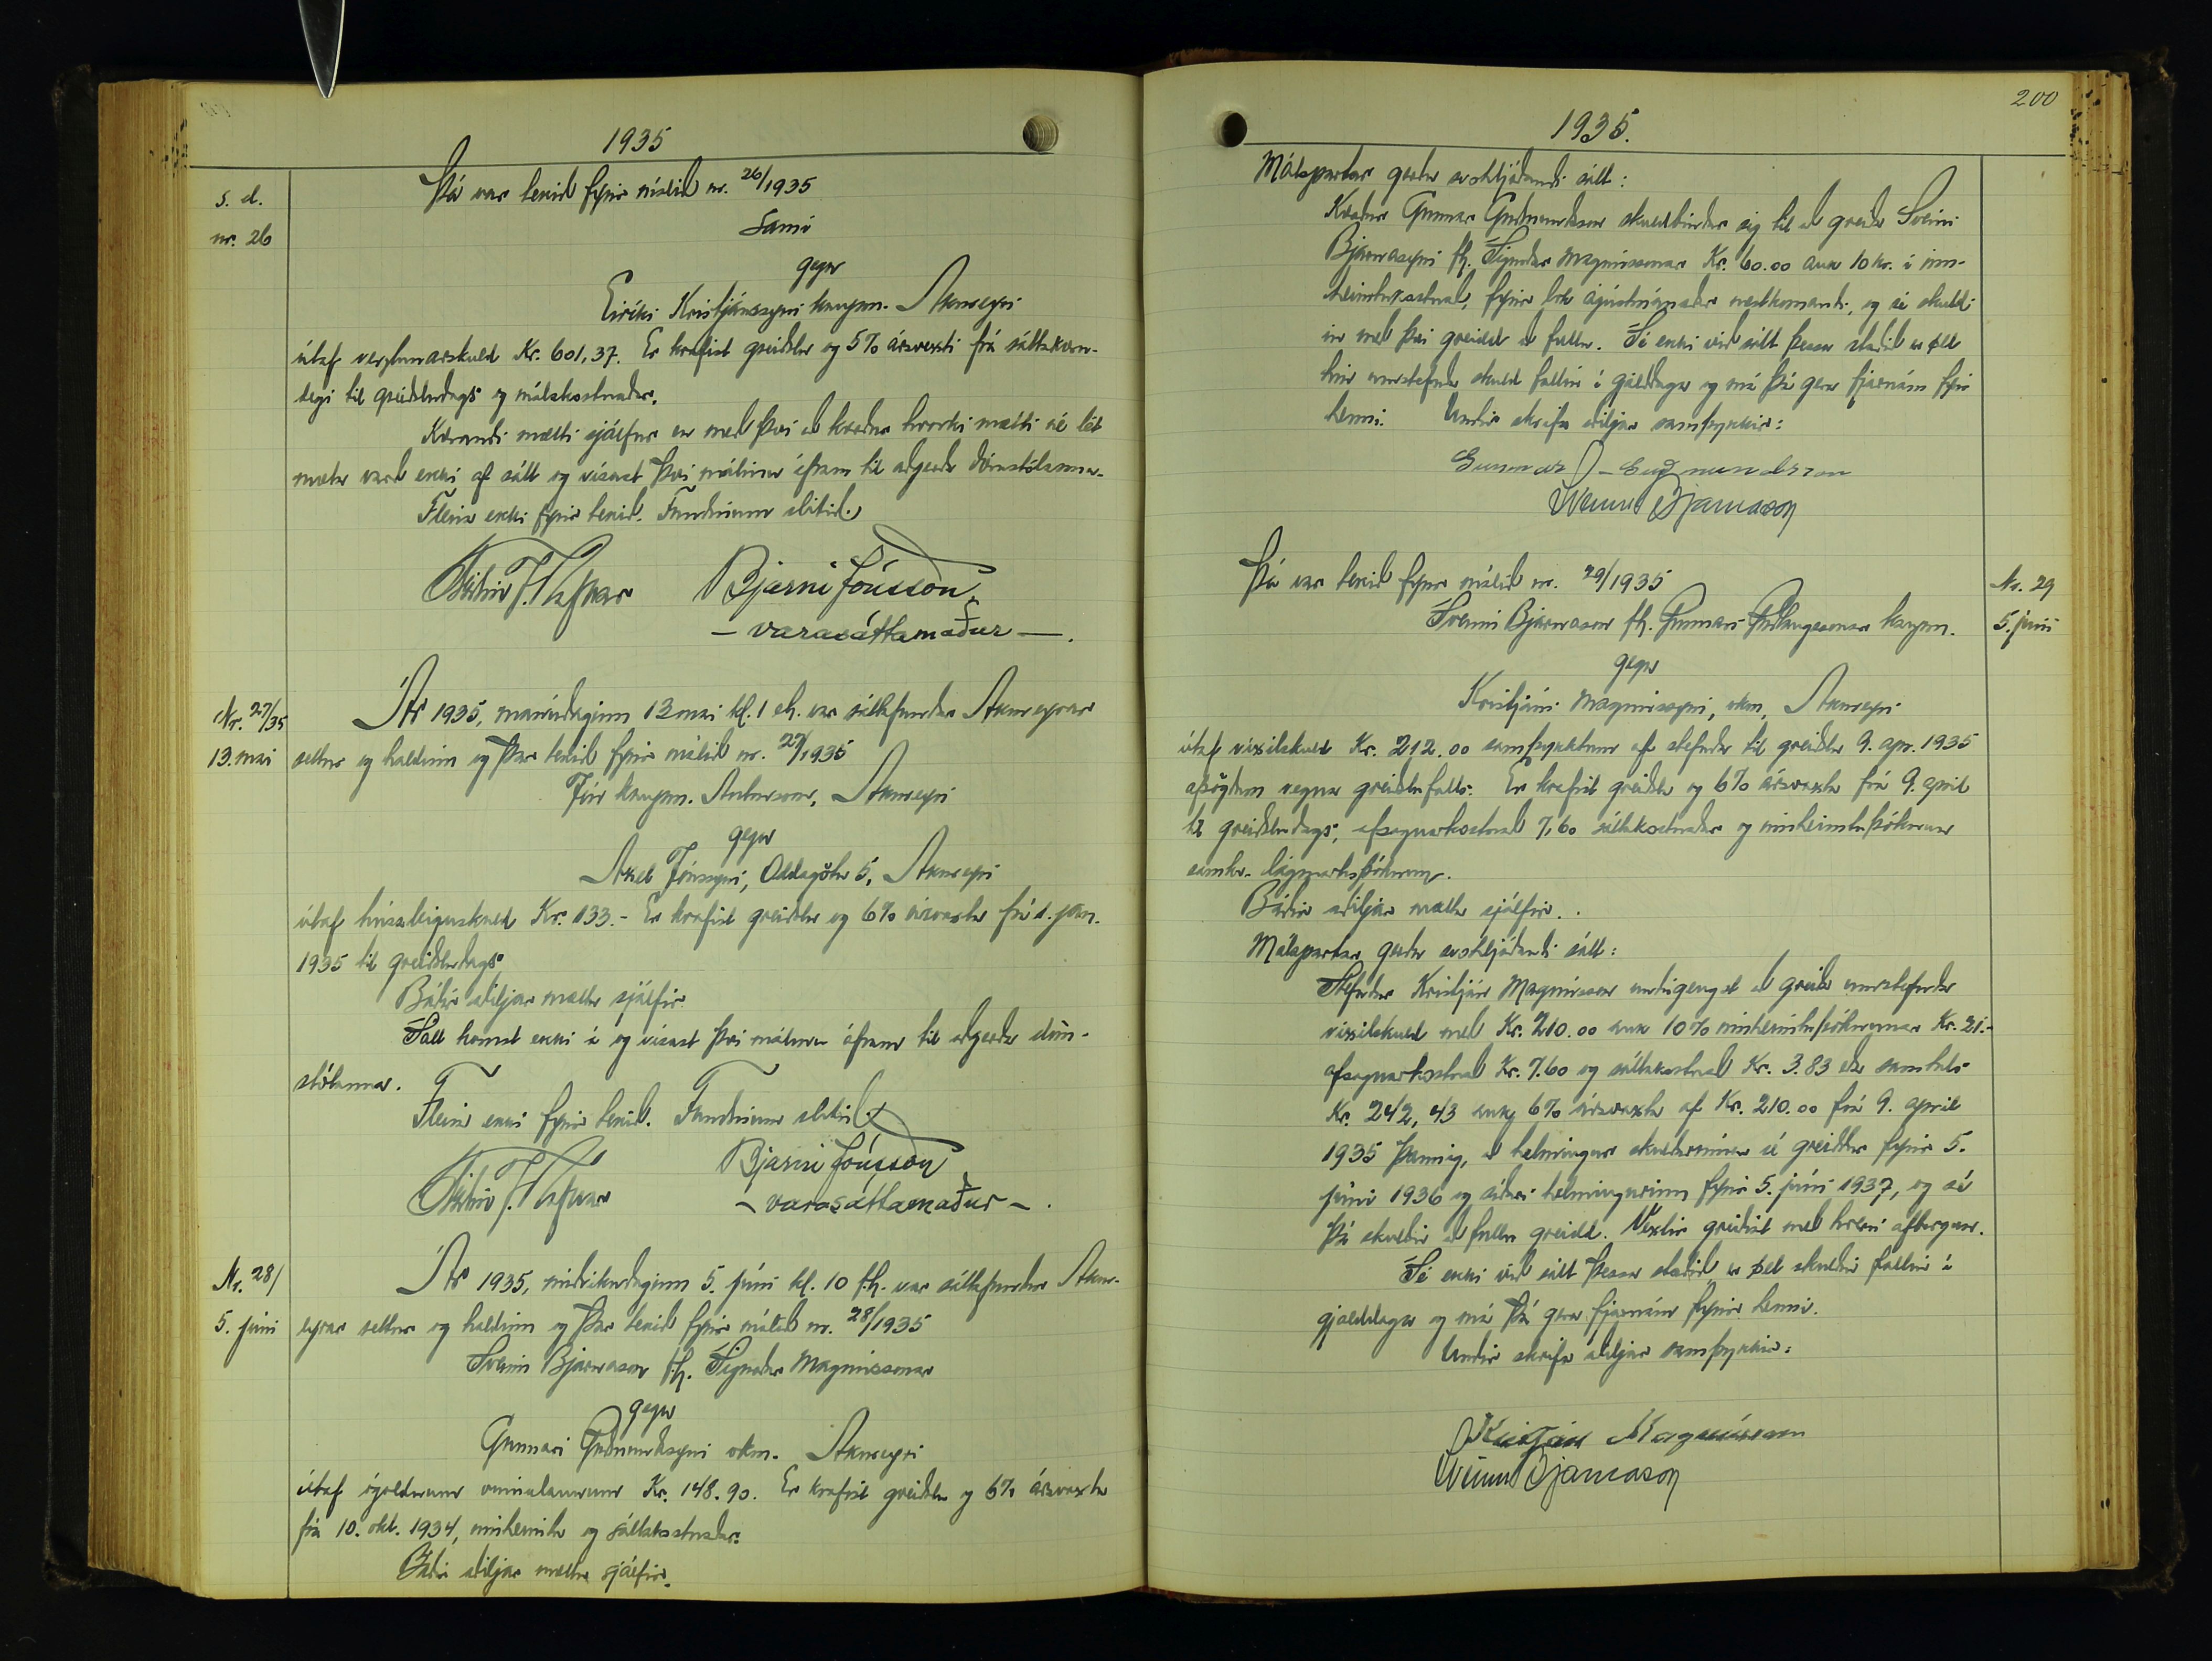 1935
s. d.
nr. 26
Þá var tekið fyrir málið nr. 26/1935
Sami
gegn
Eiríki Kristjánssyni kaupm. Akureyri
útaf verzlunarskuld Kr. 601,37. Er krafist greiðslu og 5% ársvexti frá sáttakæru-
degi til greiðsludags og málskostnaðar.
Kærandi mætti sjálfur en með því að kærður hvorki mætti né lét
mæta varð ekki af sátt og vísast því málinu áfram til aðgerða dómstólanna.
Fleira ekki fyrir tekið. Fundinum slitið.
Bjarni Jónsson
- varasáttamaður -.
Nr. 27/35
13. maí
Ár 1935, mánudaginn 13 maí kl. 1 eh. var sáttafundur Akureyrar
settur og haldinn og þar tekið fyrir málið nr. 27/1935
Jón kaupm. Antonsson, Akureyri
gegn
Axel Jónssyni, Oddagötu 5, Akureyri
útaf húsaleiguskuld Kr. 133.- Er krafist greiðslu og 6% ársvaxta frá 1. jan.
1935 til greiðsludags.
Báðir aðiljar mættu sjálfir.
Sátt komst ekki á og vísast því málinu áfram til aðgerða dóm-
stólanna.
Fleira ekki fyrir tekið. Fundinum slitið.
Bjarni Jónsson
- varasáttamaður -.
Nr. 28/
5. júni
Ár 1935, miðvikudaginn 5. júni kl. 10 f.h. var sáttafundur Akur-
eyrar settur og haldinn og þar tekið fyrir málið nr. 28/1935
Sveinn Bjarnason f.h. Sigurðar Magnússonar
gegn
Gunnari Guðmundssyni vkm. Akureyri
útaf ógoldnum vinnulaunum Kr. 148.90. Er krafist greiðslu og 6% ársvaxta
frá 10. okt. 1934, innheimtu og sáttakostnaðar.
Báðir aðiljar mættu sjálfir.
200
1935.
Málspartar gerðu svohljóðandi sátt:
Kærður Gunnar Guðmundsson skuldbindur sig til að greiða Sveini
Bjarnasyni fh. Sigurðar Magnússonar Kr. 60.00 auk 10 kr. í inn-
heimtukostnað, fyrir lok ágústmánaðar næstkomandi, og sé skuld-
in með því greidd að fullu. Sé ekki við sátt þessa staðið er öll
hin umstefnda skuld fallin í gjalddaga og má þá gera fjárnám fyrir
henni. Undir skrifa aðiljar samþykkir:
Gunnar Guðmundsson
Sveinn Bjarnason
Nr. 29
5. júní
Þá var tekið fyrir málið nr. 29/1935
Sveinn Bjarnason fh. Gunnars Guðlaugssonar kaupm.
gegn
Kristjáni Magnússyni, vkm, Akureyri
útaf víxilskuld Kr. 212.00 samþykktum af stefnda til greiðslu 9. apr. 1935
afsögðum vegna greiðslufalls. Er krafist greiðslu og 6% ársvaxta frá 9. apríl
til greiðsludags, afsagnarkostnað 7,60 sáttakostnaðar og innheimtuþóknunar
samkv. lágmarksþóknun.
Báðir aðiljar mættu sjálfir.
Málspartar gerðu svohljóðandi sátt:
Stefndur Kristján Magnússon undirgengst að greiða umstefnda
víxilskuld með Kr. 210.00 auk 10% innheimtuþóknunar Kr. 21.-
afsagnarkostnað Kr. 7.60 og sáttakostnað Kr. 3.83 eða samtals
Kr. 242,43 auk 6% ársvaxta af Kr. 210.00 frá 9. apríl
1935 þannig, að helmingur skuldarinnar sé greiddur fyrir 5.
júní 1936 og síðari helmingurinn fyrir 5. júní 1937, og sé
þá skuldin að fullu greidd. Vextir greiðist með hverri afborgun.
Sé ekki við sátt þessa staðið er öll skuldin fallin í
gjalddaga og má þá gera fjárnám fyrir henni.
Undir skrifa aðiljar samþykkir:
Kristján Magnússon
Sveinn Bjarnason